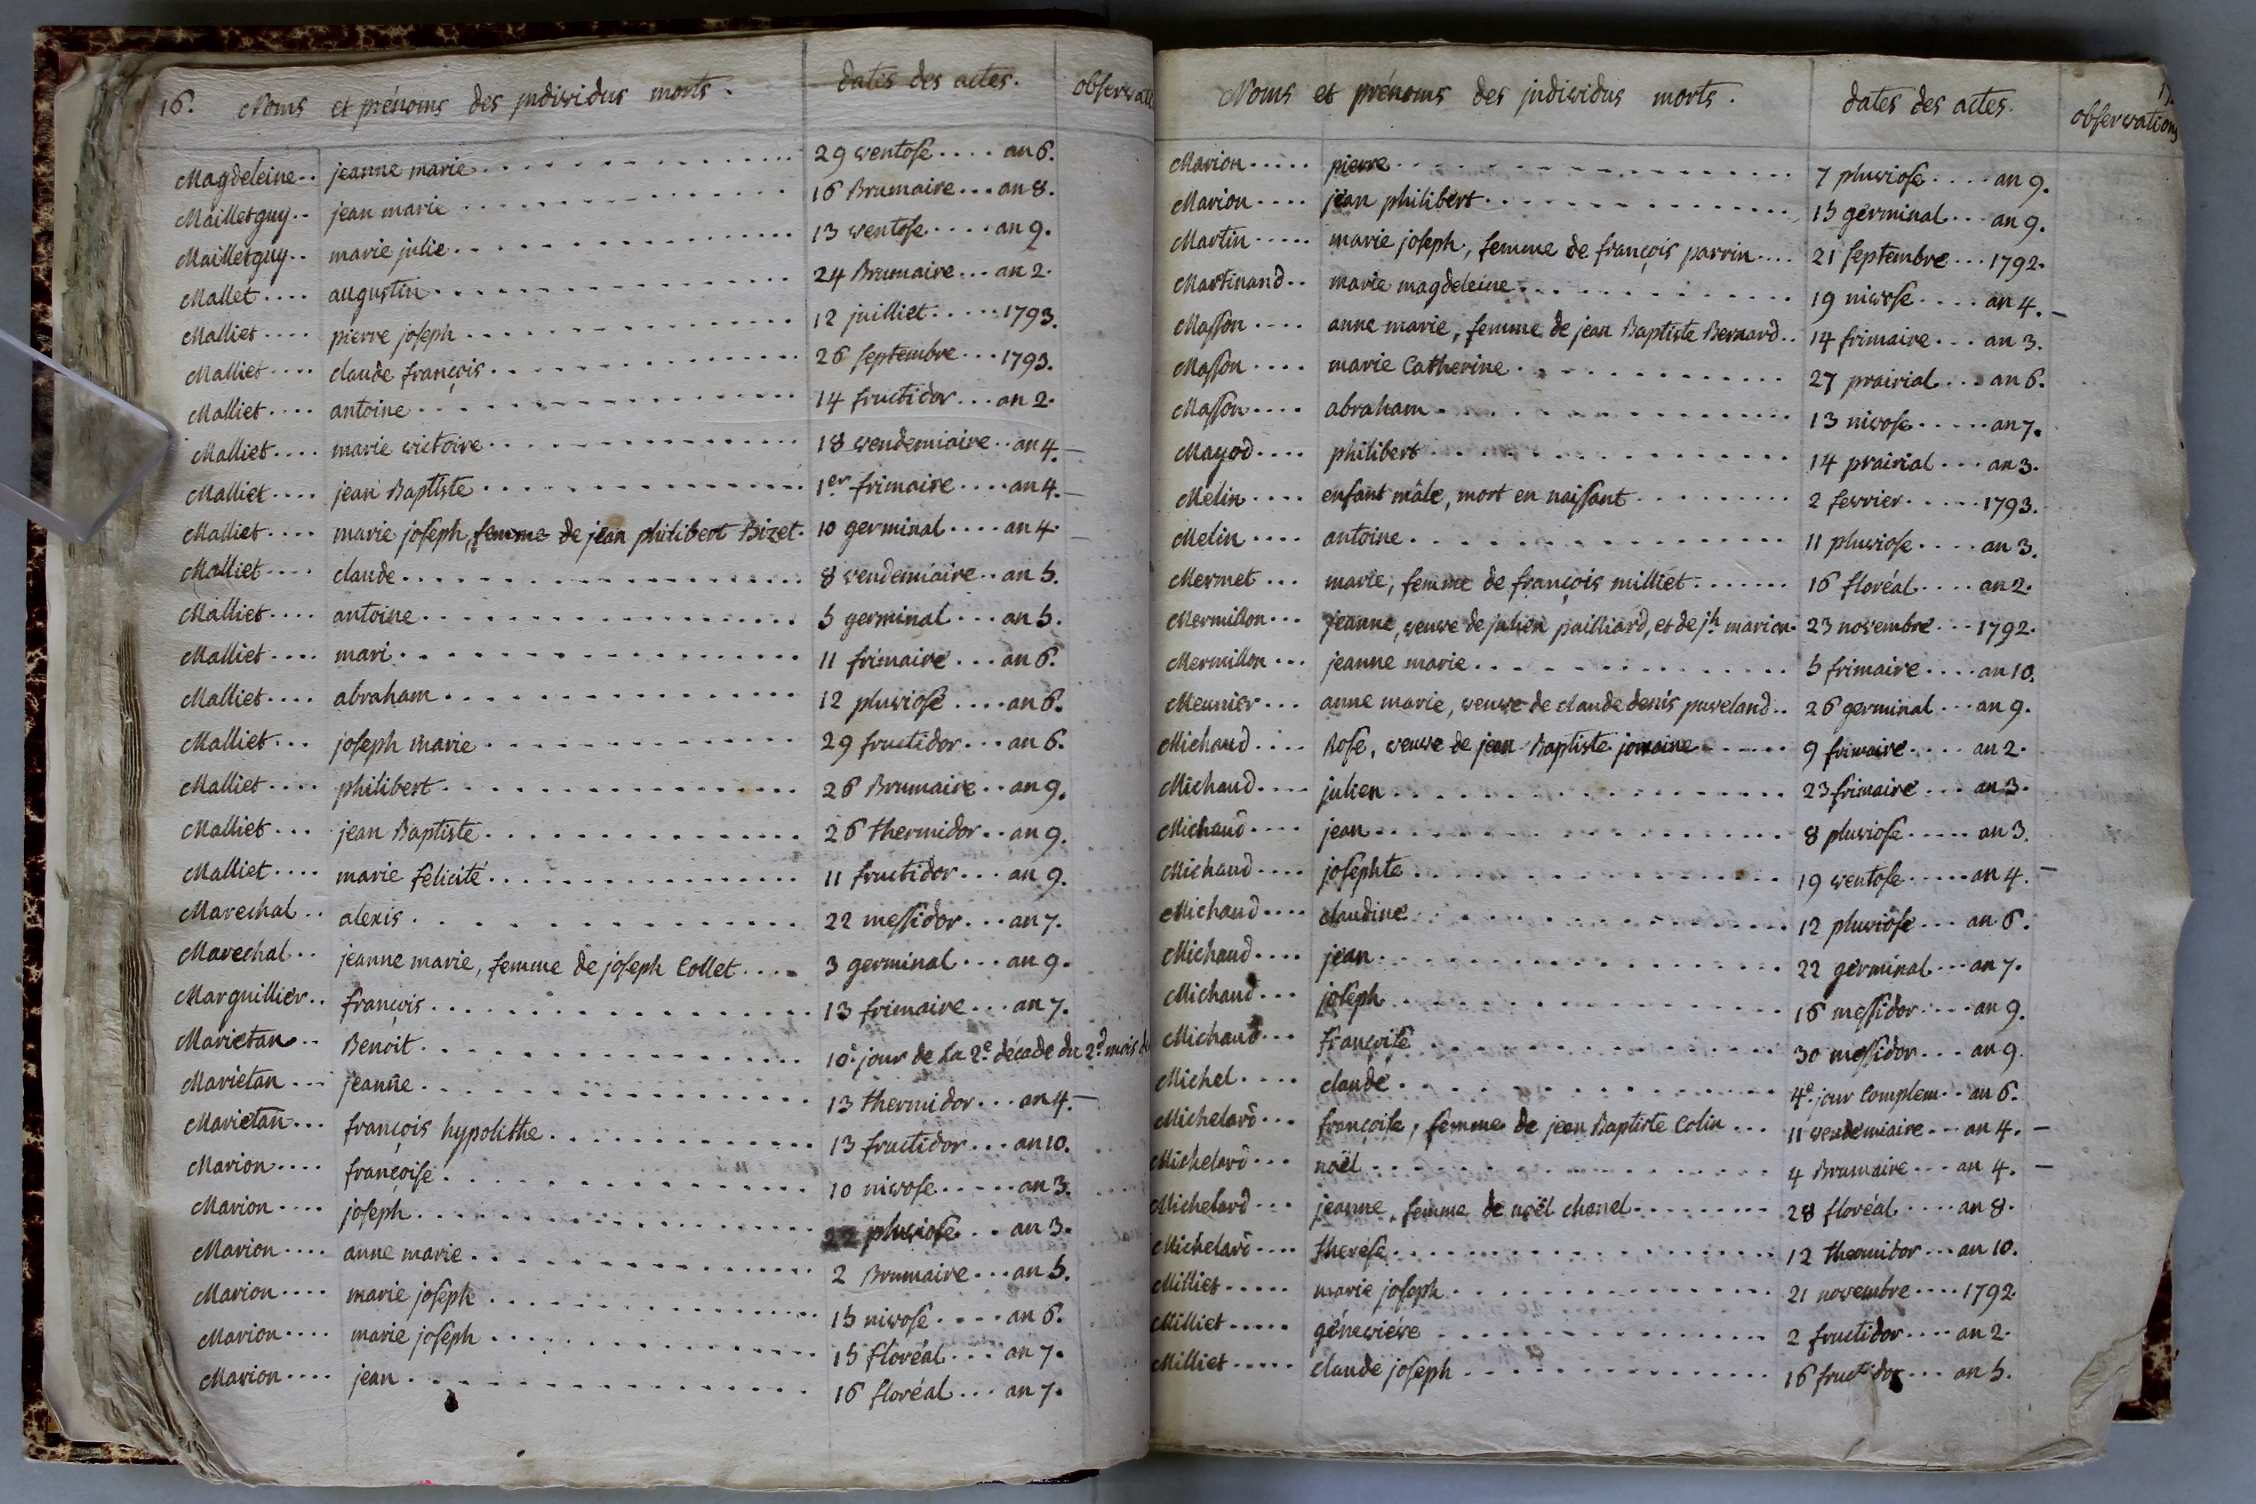 16. Noms et prénoms des jndividus morts. dates des actes. observati
Magdeleine.. jeanne marie . . . 29 ventose.... an 6.
Mailletguy.. jean marie . . . 16 Brumaire... an 8.
Mailletguy.. marie julie . . . 13 ventose.... an 9.
Mallet.... augustin . . . 24 Brumaire... an 2.
Malliet.... pierre joseph . . . 12 juilliet..... 1793.
Malliet.... claude françois . . . 26 septembre... 1793.
Malliet.... antoine . . . 14 fructidor... an 2.
Malliet.... marie victoire . . . 18 vendemiaire.. an 4. —
Malliet.... jean Baptiste . . . 1er frimaire.... an 4. —
Malliet.... marie joseph, femme de jean philibert Bizet. 10 germinal.... an 4. —
Malliet.... claude . . . 8 vendemiaire.. an 5.
Malliet.... antoine . . . 5 germinal... an 5.
Malliet.... mari . . . 11 frimaire... an 6.
Malliet.... abraham . . . 12 pluviose.... an 6.
Malliet... joseph marie . . . 29 fructidor... an 6.
Malliet.... philibert . . . 26 Brumaire.. an 9.
Malliet... jean Baptiste . . . 26 thermidor.. an 9.
Malliet.... marie félicité . . . 11 fructidor... an 9.
Marechal.. alexis . . . 22 messidor... an 7.
Marechal.. jeanne marie, femme de joseph Collet.... 3 germinal... an 9.
Marguillier.. françois . . . 13 frimaire... an 7.
Marietan.. Benoit . . . 10e jour de la 2e décade du 2d mois de
Marietan... jeanne . . . 13 thermidor... an 4. —
Marietan... françois hypolithe . . . 13 fructidor... an 10.
Marion.... françoise . . . 10 nivose..... an 3.
Marion.... joseph . . . 22 pluviose... an 3.
Marion.... anne marie . . . 2 Brumaire... an 5.
Marion.... marie joseph . . . 15 nivose.... an 6.
Marion.... marie joseph . . . 15 floréal.... an 7.
Marion.... jean . . . 16 floréal... an 7.
17.
Noms et prénoms des jndividus morts. dates des actes. observations
Marion..... pierre . . . 7 pluviose.... an 9.
Marion.... jean philibert . . . 15 germinal... an 9.
Martin..... marie joseph, femme de françois parrin.... 21 septembre... 1792.
Martinand.. marie magdeleine . . . 19 nivose.... an 4. —
Masson.... anne marie, femme de jean Baptiste Bernard.. 14 frimaire... an 3.
Masson.... marie Catherine . . . 27 prairial... an 6.
Masson.... abraham . . . 13 nivose..... an 7.
Mayod.... philibert . . . 14 prairial... an 3.
Melin.... enfant mâle, mort en naissant . . . 2 fevrier..... 1793.
Melin.... antoine . . . 11 pluviose.... an 3.
Mermet... marie, femme de françois milliet . . . 16 floréal.... an 2.
Mermillon... jeanne, veuve de julien pailliard, et de jh marion. 23 novembre... 1792.
Mermillon... jeanne marie . . . 5 frimaire.... an 10.
Meunier... anne marie, veuve de claude denis puveland.. 26 germinal... an 9.
Michaud.... Rose, veuve de jean Baptiste jomaine . . . 9 frimaire.... an 2.
Michaud.... julien . . . 23 frimaire... an 3.
Michaud.... jean . . . 8 pluviose..... an 3.
Michaud.... josephte . . . 19 ventose..... an 4. —
Michaud.... claudine . . . 12 pluviose... an 6.
Michaud.... jean . . . 22 germinal... an 7.
Michaud... joseph . . . 16 messidor.... an 9.
Michaud... françoise . . . 30 messidor... an 9.
Michel.... claude . . . 4e jour Complem.. an 6.
Michelard... françoise, femme de jean Baptiste Colin... 11 vendemiaire... an 4. —
Michelard... noël . . . 4 Brumaire... an 4. —
Michelard... jeanne, femme de noël chanel . . . 28 floréal.... an 8.
Michelard.... therese . . . 12 thermidor... an 10.
Milliet..... marie joseph . . . 21 novembre.... 1792.
Milliet..... géneviéve . . . 2 fructidor.... an 2.
Milliet..... claude joseph . . . 16 fructidor... an 5.